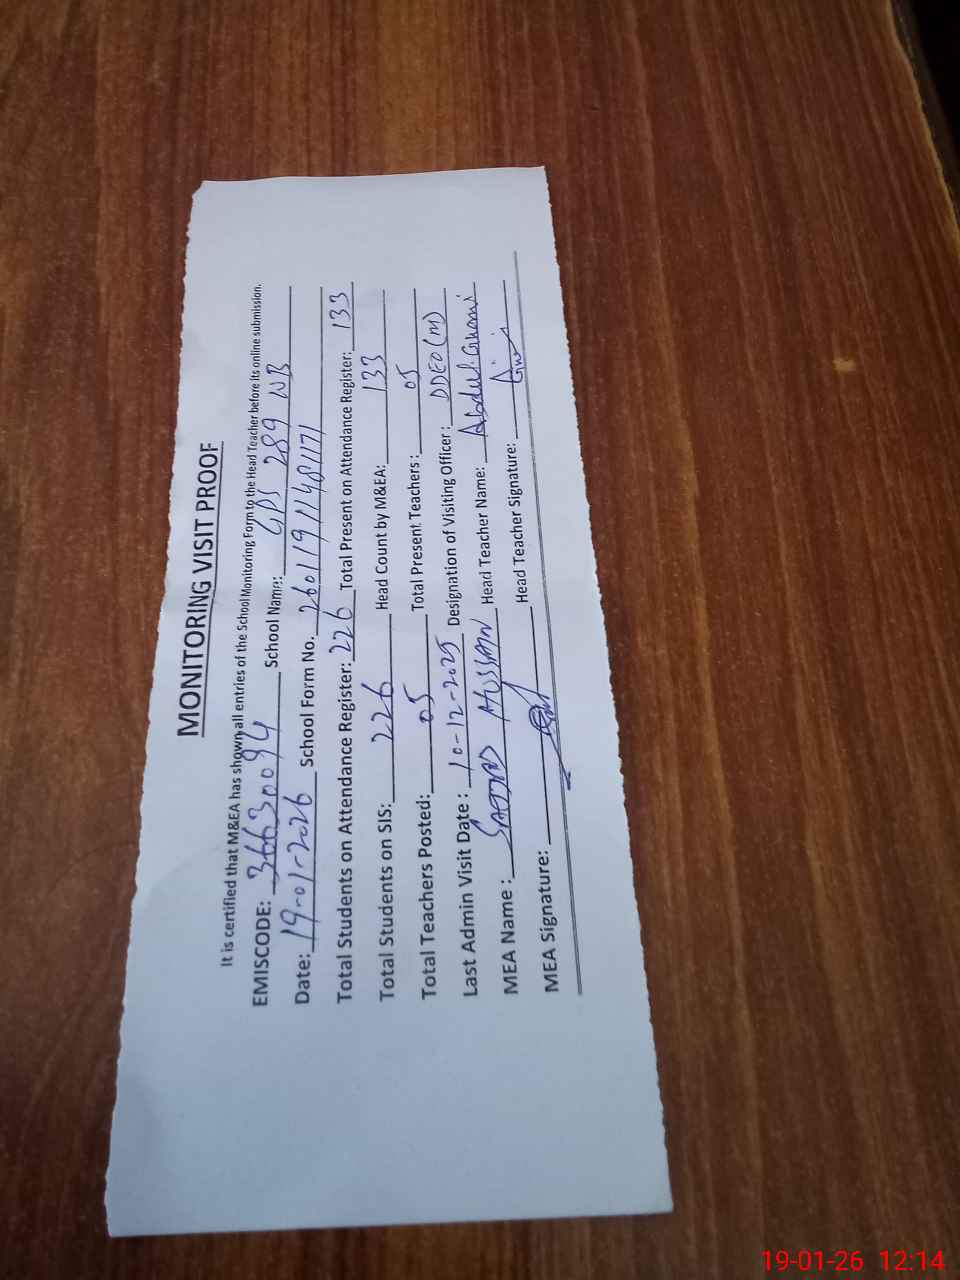 MONITORING VISIT PROOF
It is certified that M&EA has shown all entries of the School Monitoring Form to the Head Teacher before its online submission.
EMISCODE: 36630094 School Name: GPS 289 WB
Date: 19-01-2026 School Form No. 260119111481171
Total Students on Attendance Register: 226 Total Present on Attendance Register: 133
Total Students on SIS: 226 Head Count by M&EA: 133
Total Teachers Posted: 05 Total Present Teachers: 05
Last Admin Visit Date: 10-12-2025 Designation of Visiting Officer: DDEO(M)
MEA Name: SAJJAD HUSSAIN Head Teacher Name: Abdul Ghani
MEA Signature: Head Teacher Signature:
19-01-26 12:14